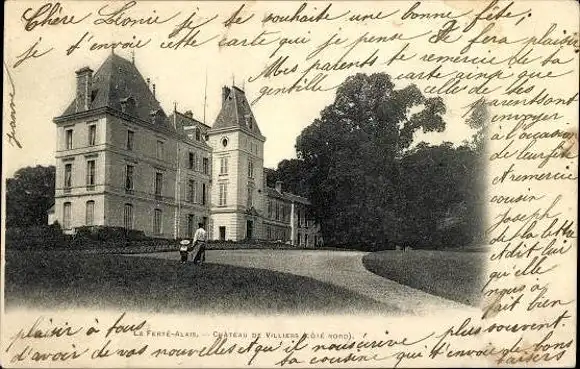 Chère Léonie je te souhaite une bonne fête,
je t'envoie cette carte qui je pense te fera plaisir
Mes parents te remercie de ta
gentille carte ainsi que
celle de tes
parents ont
envoyer
à l'occasion
de leur fête
et remercie
cousin
Joseph
de la lettre
et dit lui
qu'elle
nous à
fait bien
plaisir à tous
plus souvent.
d'avoir de vos nouvelles et qu'il nous écrive
ta cousine qui t'envoie de bons
baisers
Jeanne
LA FERTÉ-ALAIS. — CHÂTEAU DE VILLIERS (CÔTÉ NORD).